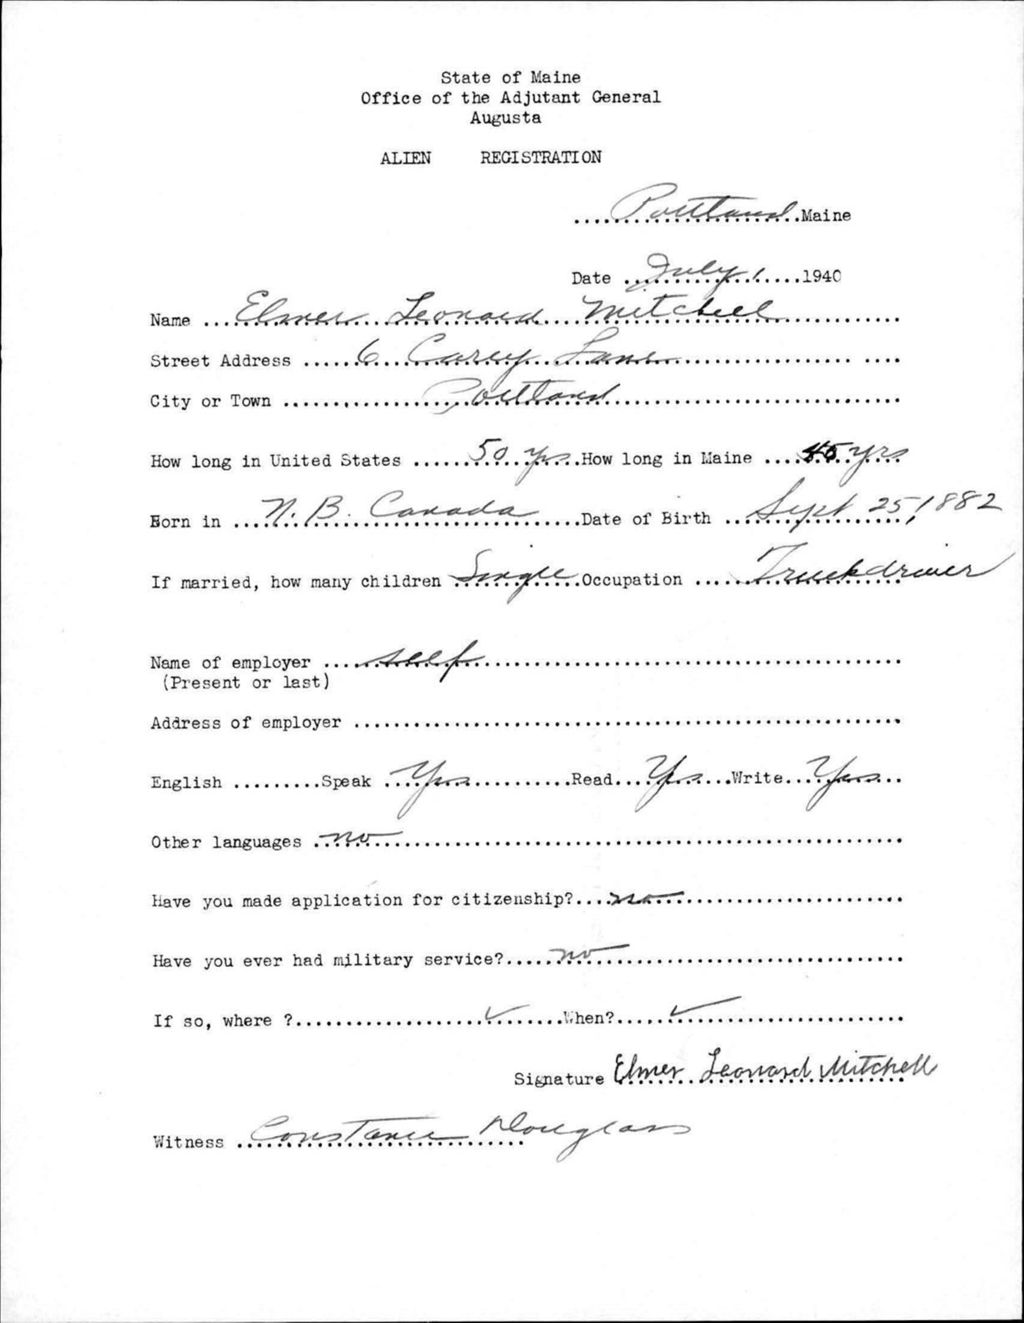 State of Maine
Office of the Adjutant General
Augusta
ALIEN REGISTRATION
....Portland....Maine
Date ...July 1.....1940
Name ...Elmer Leonard Mitchell...
Street Address .....6 Carey Lane...
City or Town ......Portland......
How long in United States ......50 yrs...How long in Maine ....45 yrs
Born in ...N. B. Canada......Date of Birth ...Sept 25, 1882
If married, how many children ..Single..Occupation .....Truckdriver
Name of employer ....self......
(Present or last)
Address of employer ......
English .........Speak ..Yes.........Read...Yes...Write...Yes...
Other languages ..no......
Have you made application for citizenship?....no......
Have you ever had military service?.....no......
If so, where ?......✓.......When?.....✓......
Signature Elmer Leonard Mitchell
Witness ..Constance Douglass